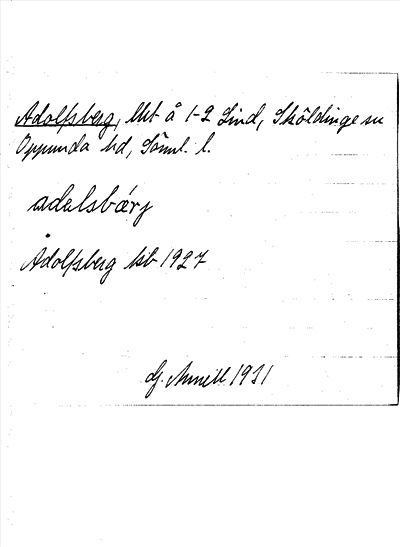 Adolfsberg, lht å 1-2 Lind, Sköldinge sn
Oppunda hd, Söml. l.
adalsbärj
Adolfsberg kb 1927
G. 1931